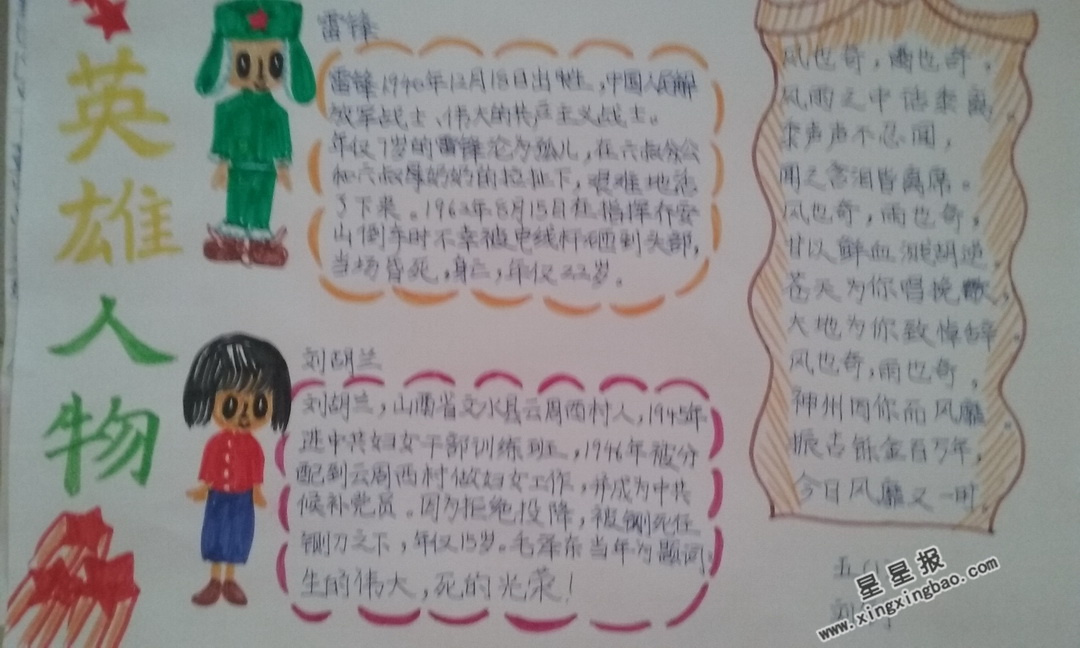 英雄人物
雷锋
雷锋1940年12月18日出生，中国人民解
放军战士、伟大的共产主义战士。
年仅7岁的雷锋沦为孤儿，在六叔公
和六叔奶奶的拉扯下，艰难地活
了下来。1962年8月15日在指挥乔安
山倒车时不幸被电线杆砸到头部，
当场昏死，身亡，年仅22岁。
刘胡兰
刘胡兰，山西省文水县云周西村人，1945年
进中共妇女干部训练班，1946年被分
配到云周西村做妇女工作，并成为中共
候补党员。因为拒绝投降，被铡死在
铡刀之下，年仅15岁。毛泽东当年为题词：
生的伟大，死的光荣！
风也奇，雨也奇，
风雨之中话
声声不忍闻，
闻之含泪皆离席。
风也奇，雨也奇，
甘以鲜血溅胡逆。
苍天为你唱挽歌，
大地为你致悼辞
风也奇，雨也奇，
神州因你而风靡
振古铄金百万年，
今日风靡又一时。
五
刘
星星报
www.xingxingbao.com